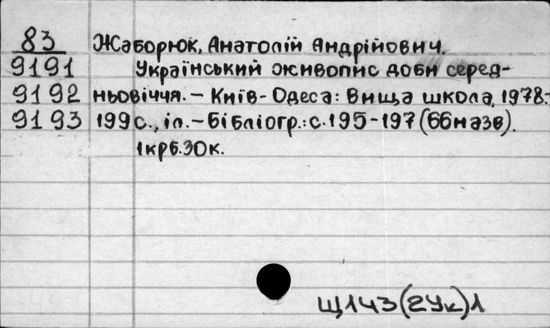 83 Жаборюк, Анатолій Андрійович.
9191 Український живопис доби серед-
9192 ньовіччя. – Київ-Одеса: Вища школа, 1978.-
9193 199с., іл. – Бібліогр.: с.195-197 (66назв).
1крб.30к.
Щ143(2Ук)1